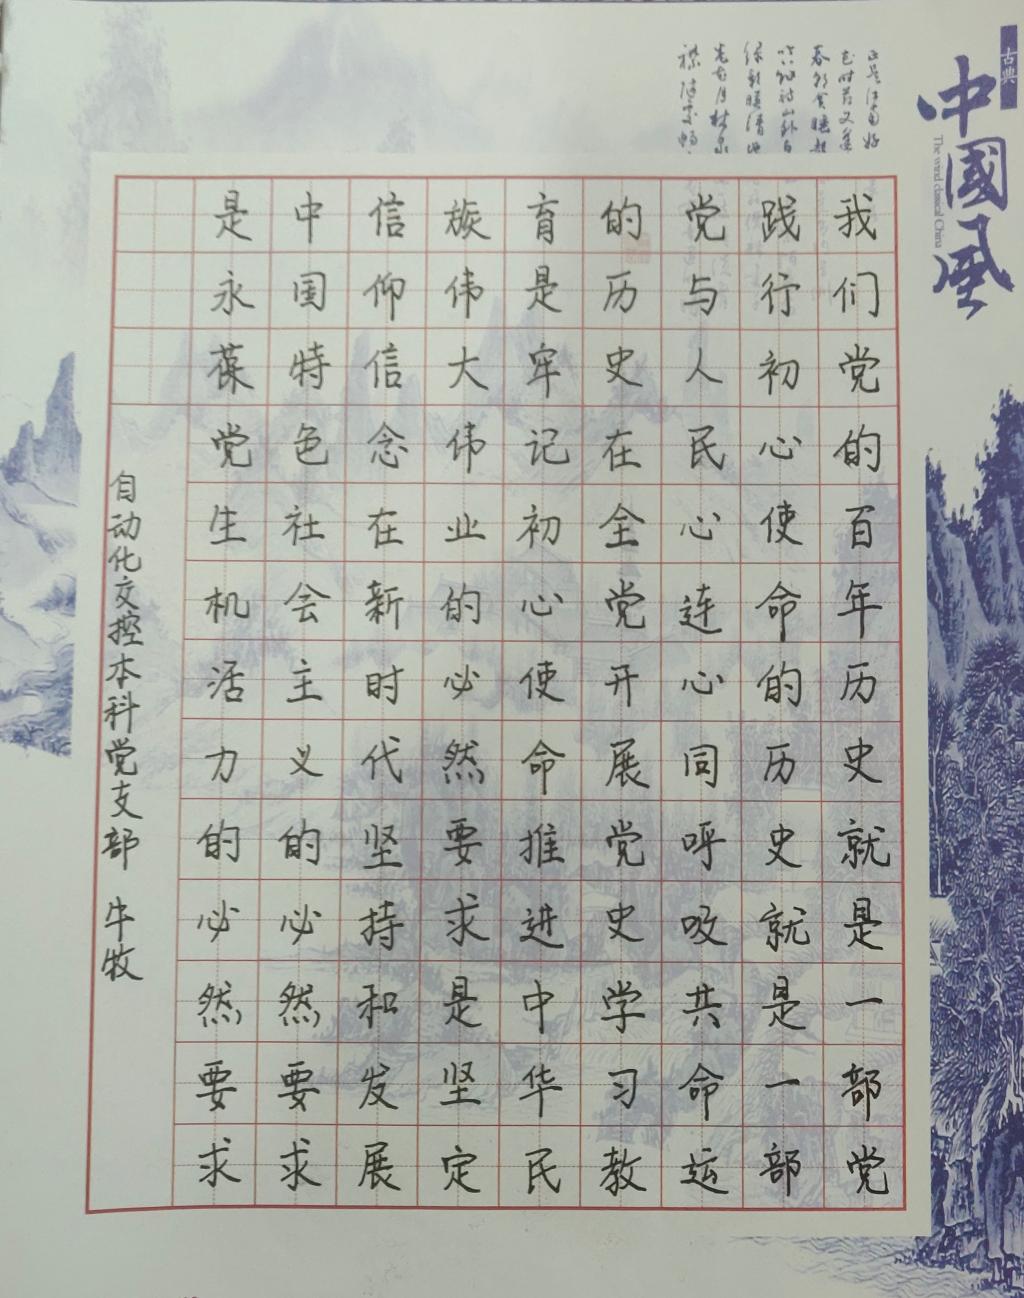 古典
中國風
The wind classical China
我们党的百年历史就是一部党
践行初心使命的历史就是一部
党与人民心连心同呼吸共命运
的历史在全党开展党史学习教
育是牢记初心使命推进中华民
族伟大伟业的必然要求是坚定
信仰信念在新时代坚持和发展
中国特色社会主义的必然要求
是永葆党生机活力的必然要求
自动化文控本科党支部 牛牧